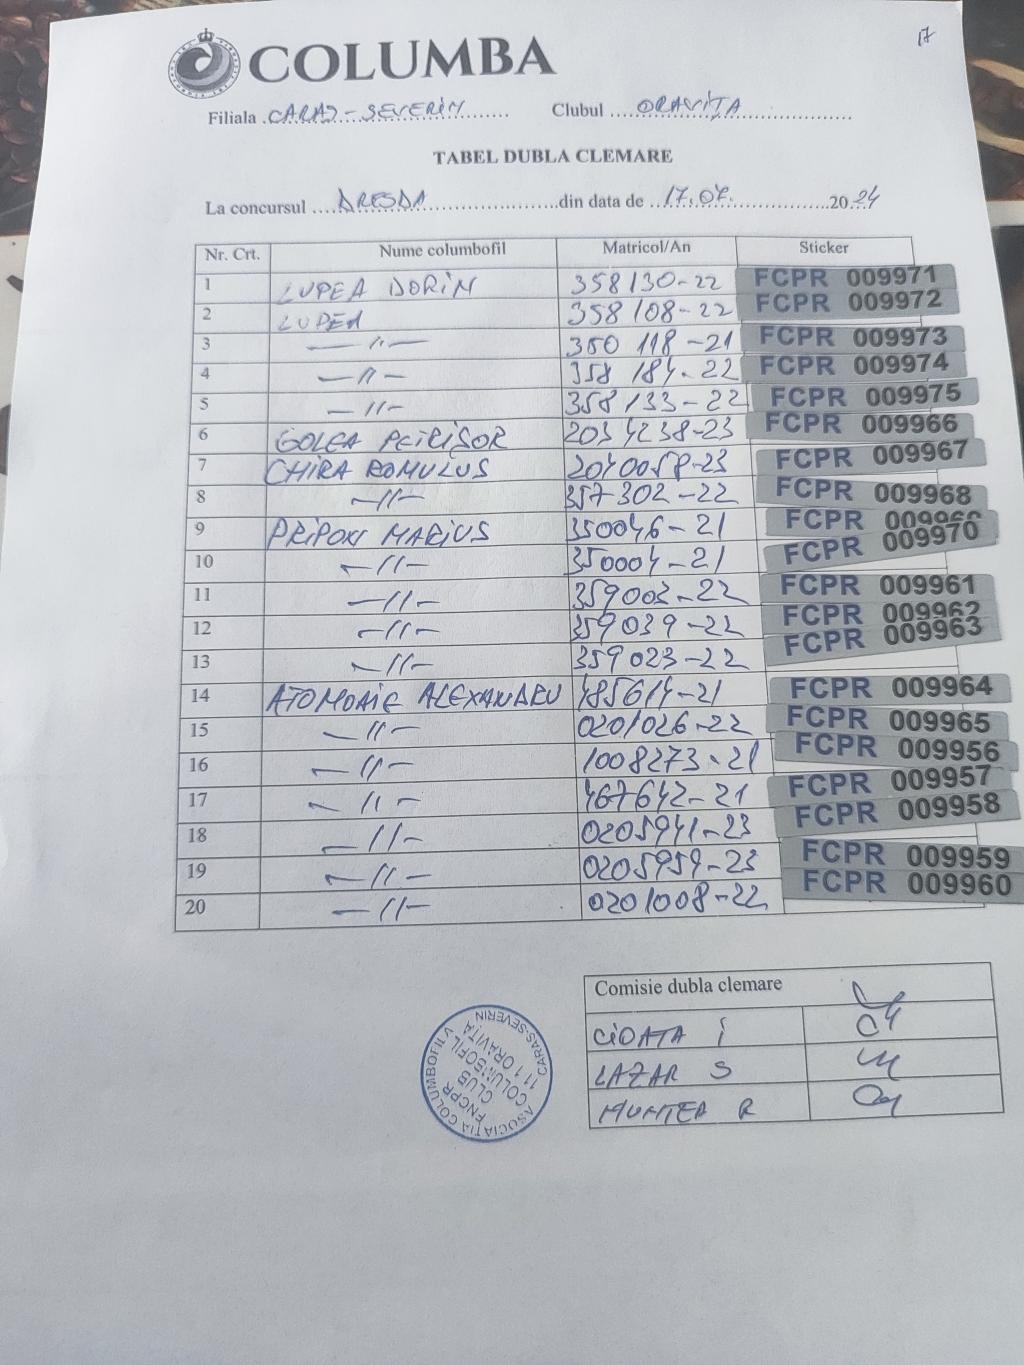 17
COLUMBA
Filiala CARAS-SEVERIN Clubul ORAVIȚA
TABEL DUBLA CLEMARE
La concursul DRESDA din data de 17.07. 2024
Nr. Crt. Nume columbofil Matricol/An Sticker
1 LUPEA DORIN 358130-22 FCPR 009971
2 LUPEA 358108-22 FCPR 009972
3 —//— 350118-21 FCPR 009973
4 —//— 358184-22 FCPR 009974
5 —//— 358133-22 FCPR 009975
6 GOLEA PETRISOR 2034238-23 FCPR 009966
7 CHIRA ROMULUS 2040058-23 FCPR 009967
8 —//— 357302-22 FCPR 009968
9 PRIPON MARIUS 350046-21 FCPR
10 —//— 350004-21 FCPR 009970
11 —//— 359002-22 FCPR 009961
12 —//— 359039-22 FCPR 009962
13 —//— 359023-22 FCPR 009963
14 ATOMOAIE ALEXANDRU 485614-21 FCPR 009964
15 —//— 0201026-22 FCPR 009965
16 —//— 1008273-21 FCPR 009956
17 —//— 467642-21 FCPR 009957
18 —//— 0205941-23 FCPR 009958
19 —//— 0205959-23 FCPR 009959
20 —//— 0201008-22 FCPR 009960
Comisie dubla clemare
CIOATA I
LAZAR S
MUNTEA R
ASOCIAȚIA COLUMBOFILĂ CARAS-SEVERIN
FNCPR
CLUB
COLUMBOFIL
111 ORAVIȚA